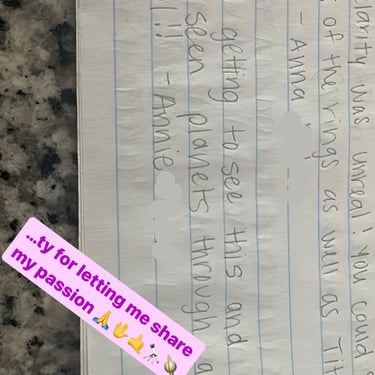 clarity was unreal! You could
of the rings as well as Tit
- Anna
getting to see this and
seen planets through a
!!! - Annie
...ty for letting me share
my passion 🙏🤟🤙🔭🪐